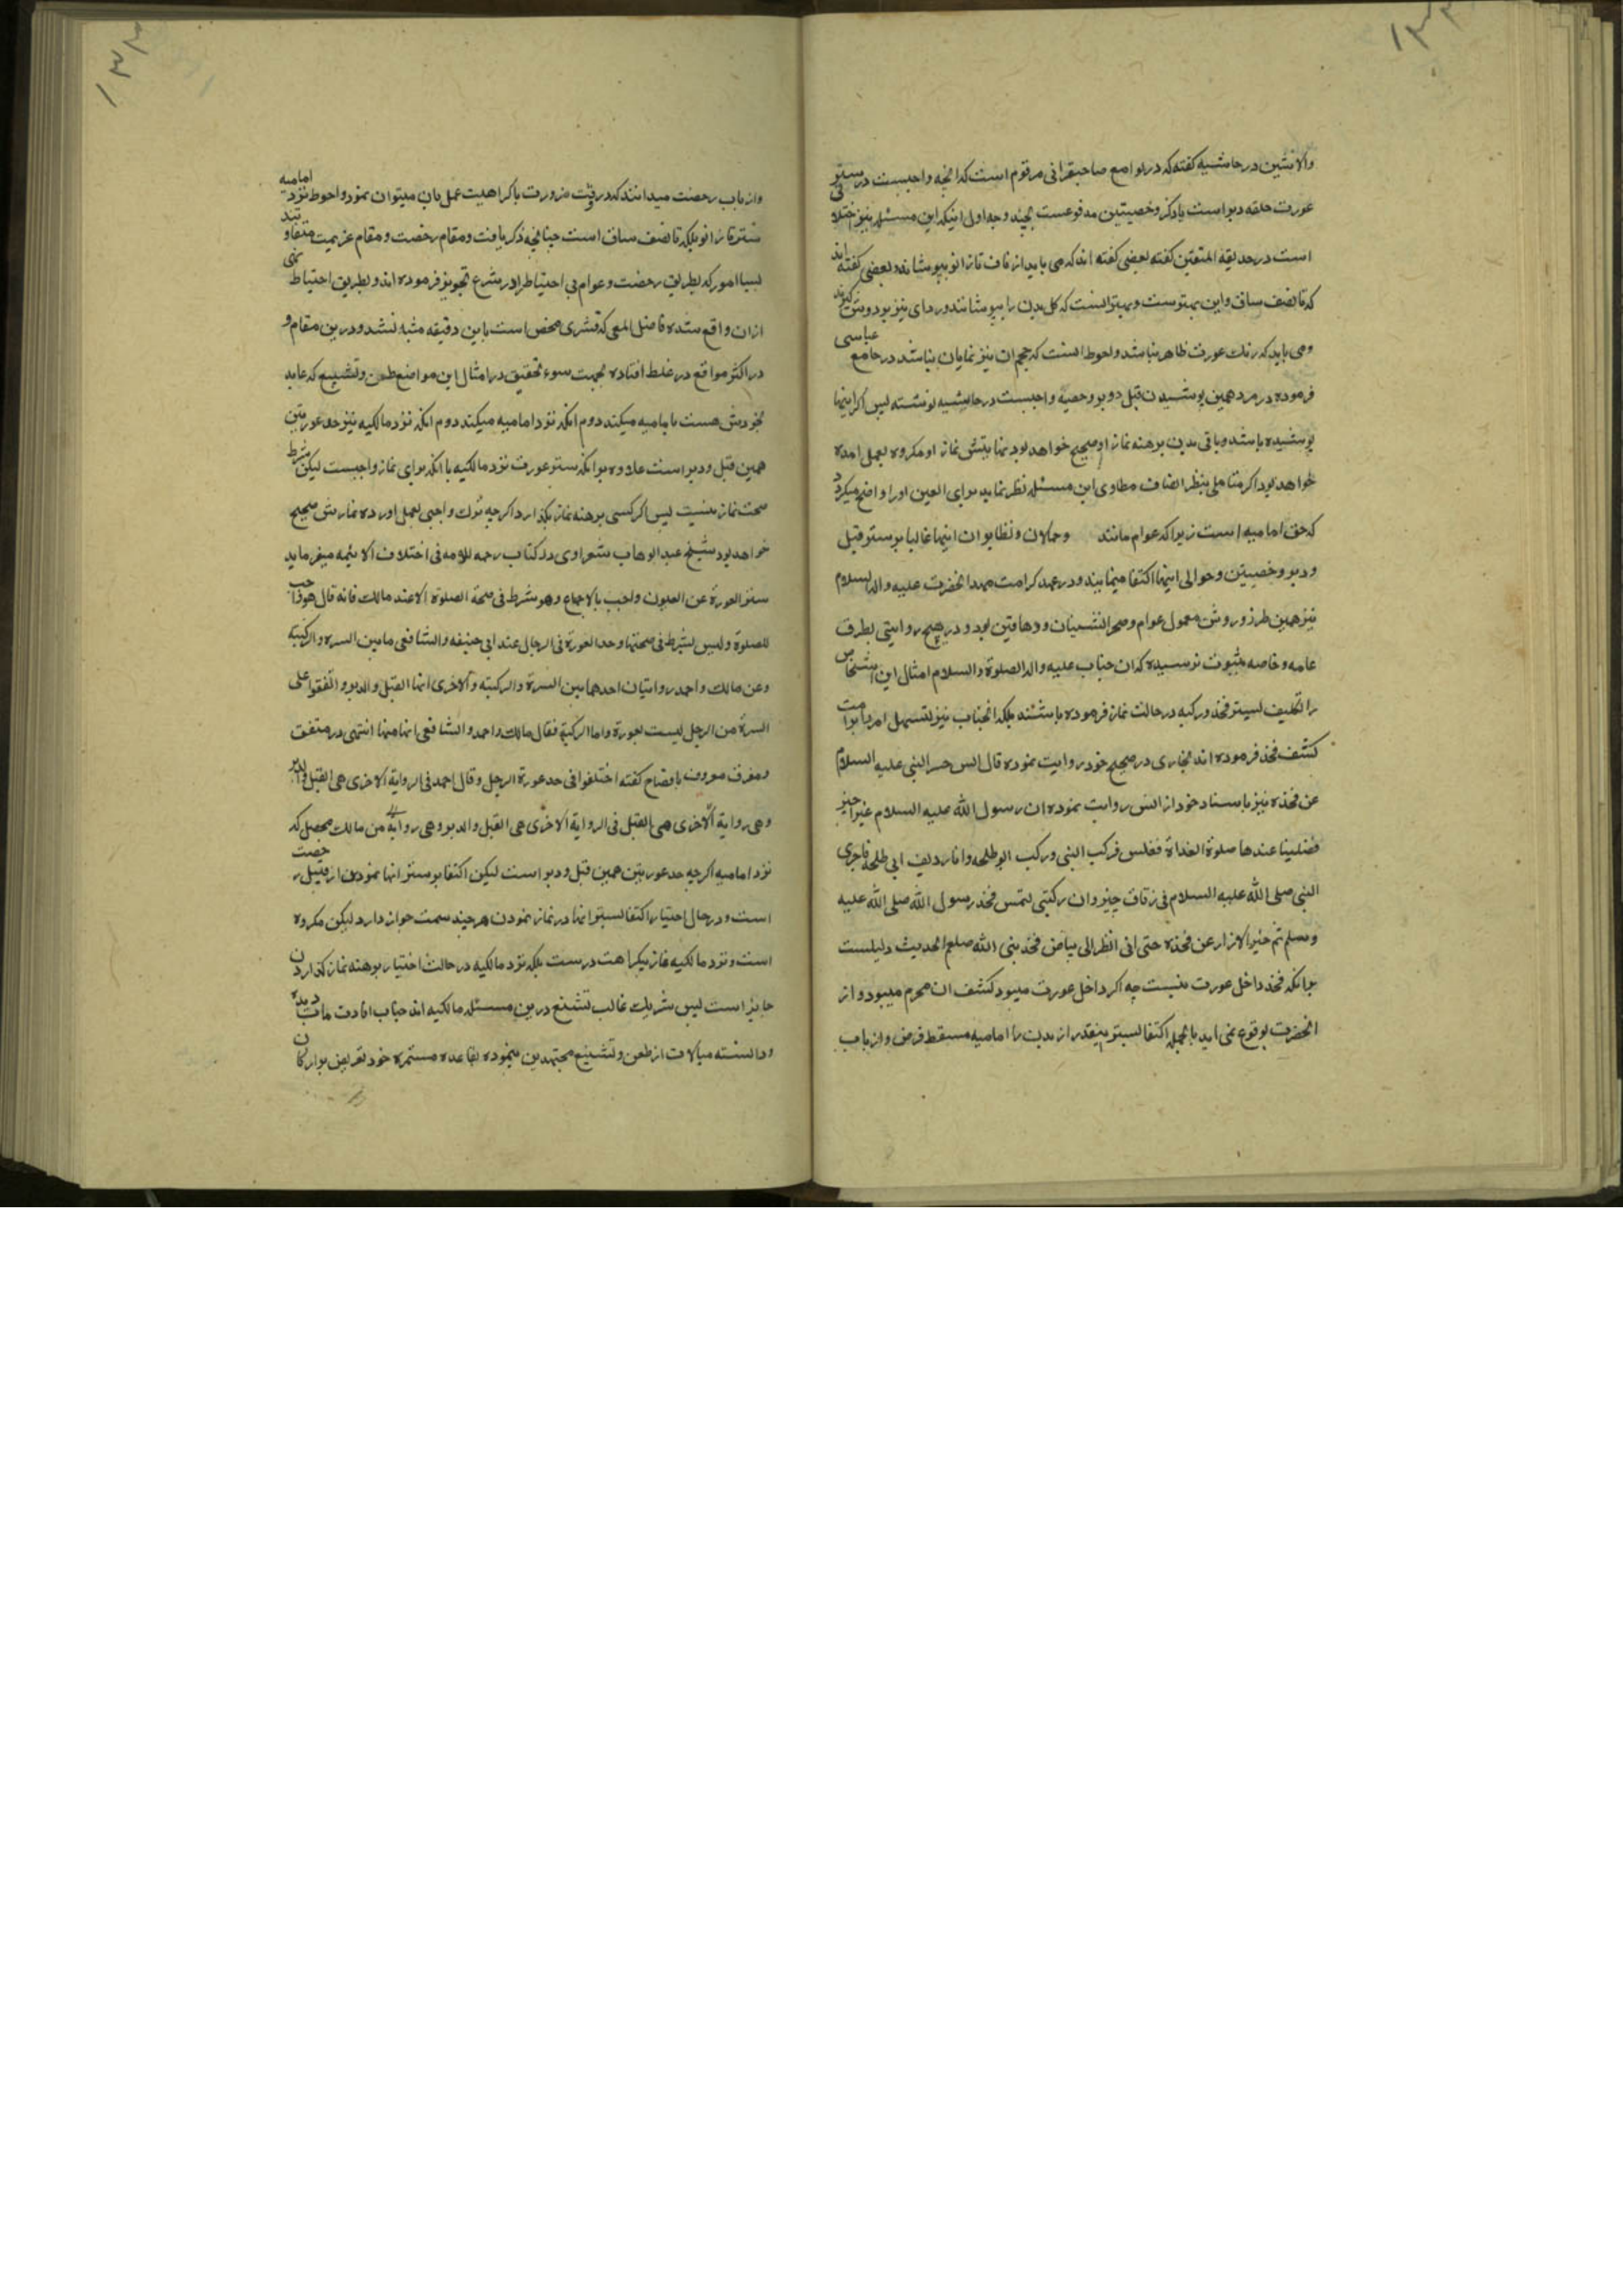 والانثیین در حاشیه کفته که در لوامع صاحبقرانی مرقوم است که انچه واجبست در ستر
عورت حلقه دبر است یا ذکر و خصیتین مدفوعست بچند وجه اول اینکه این مسئله نیز اختلافی
است در حدیقة المتقین کفته بعضی کفته اند که می باید از ناف تا زانو بپوشاند و بعضی کفته اند
که تا نصف ساق و این بهترست و بهتر انست که کل بدن را بپوشانند و ردای نیز بر دوش کیرند
و می باید که رنك عورت ظاهر نباشد و احوط انست که حجم ان نیز نمایان نباشد در جامع عباسی
فرموده در مرد همین پوشیدن قبل و دبر و خصیه واجبست در حاشیه نوشته پس اکر اینها
پوشیده باشد و باقی بدن برهنه نماز او صحیح خواهد بود نهایتش نماز او مکروه بعمل امده
خواهد بود اکر متاملی بنظر انصاف مطاوی این مسئله نظر نماید برای العین او را واضح میکردد
که حق امامیه است زیرا که عوام مانند وحمالان و نظایر ان اینها غالبا بر ستر قبل
و دبر و خصیتین و حوالی اینها اکتفا مینمایند و در عهد کرامت مهد انحضرت علیه واله السلام
نیز همین طرز و روش معمول عوام و صحرانشینان و دهاقین بود و در هیچ روایتی بطرق
عامه و خاصه بثبوت نرسیده که ان جناب علیه واله الصلوة والسلام امثال این اشخاص
را تکلیف بستر فخذ و رکبه در حالت نماز فرموده باشند بلکه انجناب نیز
کشف فخذ فرموده اند بخاری در صحیح خود روایت نموده قال انس حسر النبی علیه السلام
عن فخذه نیز باسناد خود از انس روایت نموده ان رسول الله علیه السلام غزا خیبر
فصلینا عندها صلوة الغداة فغلس فرکب النبی و رکب ابو طلحه وانا ردیف ابی طلحه فاجری
النبی صلی الله علیه السلام فی زقاق خیبر وان رکبتی لتمس فخذ رسول الله صلی الله علیه
وسلم ثم حسر الازار عن فخذه حتی انی انظر الی بیاض فخذ نبی الله صلعم الحدیث دلیلست
بر انکه فخذ داخل عورت نیست چه اکر داخل عورت میبود کشف ان محرم میبود و از
انحضرت بوقوع نمی امد بالجمله اکتفا بستر اینقدر از بدن را امامیه مسقط فرض و از باب
واز باب رخصت میدانند که در وقت ضرورت با کراهیت عمل بان میتوان نمود و احوط نزد امامیه
ستر تا زانو بلکه تا نصف ساق است چنانچه ذکر یافت و مقام رخصت و مقام عزیمت متفاوتند
بسیا امور که بطریق رخصت و عوام بی احتیاط را در شرع تجویز فرموده اند و بطریق احتیاط نهی
ازان واقع شده فاضل المعی که قشری محض است باین دقیقه متنبه نشد و درین مقام و
در اکثر مواقع در غلط افتاده بجهت سوء تحقیق در امثال این مواضع طعن و تشنیع که عاید
بخودش هست بامامیه میکند دوم انکه نزد امامیه میکند دوم انکه نزد مالکیه نیز حد عورتین
همین قبل و دبر است علاوه بر انکه ستر عورت نزد مالکیه با انکه برای نماز واجبست لیکن شرط
صحت نماز نیست پس اکر کسی برهنه نماز بکذارد اکرچه ترك واجبی بعمل اورده نمازش صحیح
خواهد بود شیخ عبد الوهاب شعراوی در کتاب رحمه للامه فی اختلاف الائیمه میفرماید
ستر العورة عن العیون واجب بالاجماع وهو شرط فی صحة الصلوة الا عند مالك فانه قال هو واجب
للصلوة ولیس بشرط فی صحتها وحد العورة فی الرجال عند ابی حنیفه والشافعی مابین السره والرکبة
وعن مالك واحمد روایتان احدهما بین السرة والرکبته والاخری انها القبل والدبر واتفقوا علی
السرة من الرجل لیست بعورة واما الرکبة فقال مالك واحمد والشافعی انها منها انتهی در متفق
ومفرق معروف بافصاح کفته اختلفوا فی حد عورة الرجل وقال احمد فی الروایة الاخری هی القبل والدبر
وهی روایة الاخری هی القبل فی الروایة الاخری هی القبل والدبر وهی روایة من مالك محصل که
نزد امامیه اکرچه حد عورتین همین قبل و دبر است لیکن اکتفا بر ستر انها نمودن از قبیل رخصت
است و در حال اختیار اکتفا بستر انها در نماز نمودن هرچند سمت جواز دارد لیکن مکروه
است و نزد مالکیه نماز بکراهت درست بلکه نزد مالکیه در حالت اختیار برهنه نماز کذاردن
جایز است پس شریك غالب تشنع درین مسئله مالکیه اند جناب افادت ماب دیده
ودانسته مبالات از طعن و تشنیع مجتهدین ننموده بقاعده مستمره خود تعریض بر ارکان